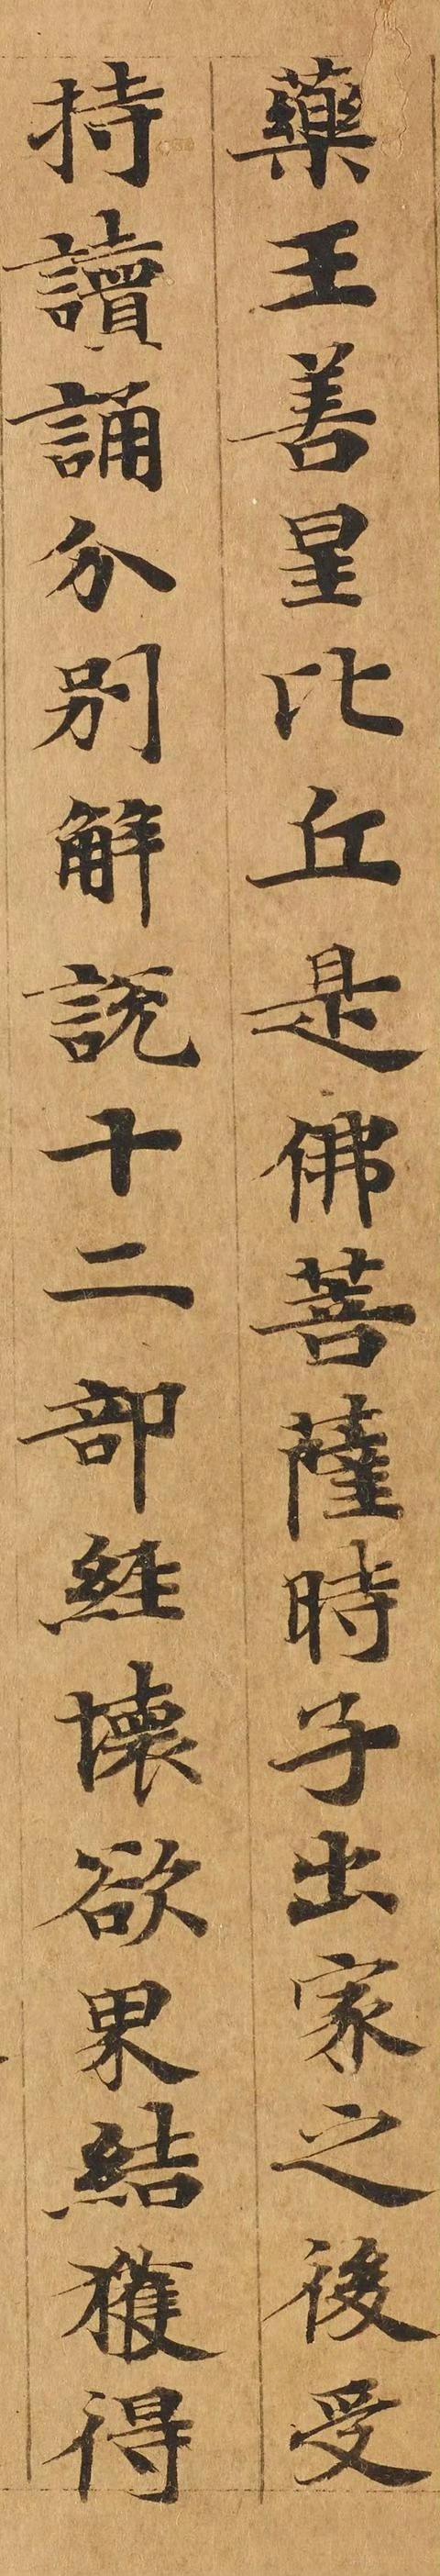 藥王善星比丘是佛菩薩時子出家之後受
持讀誦分別解說十二部經壞欲界結獲得